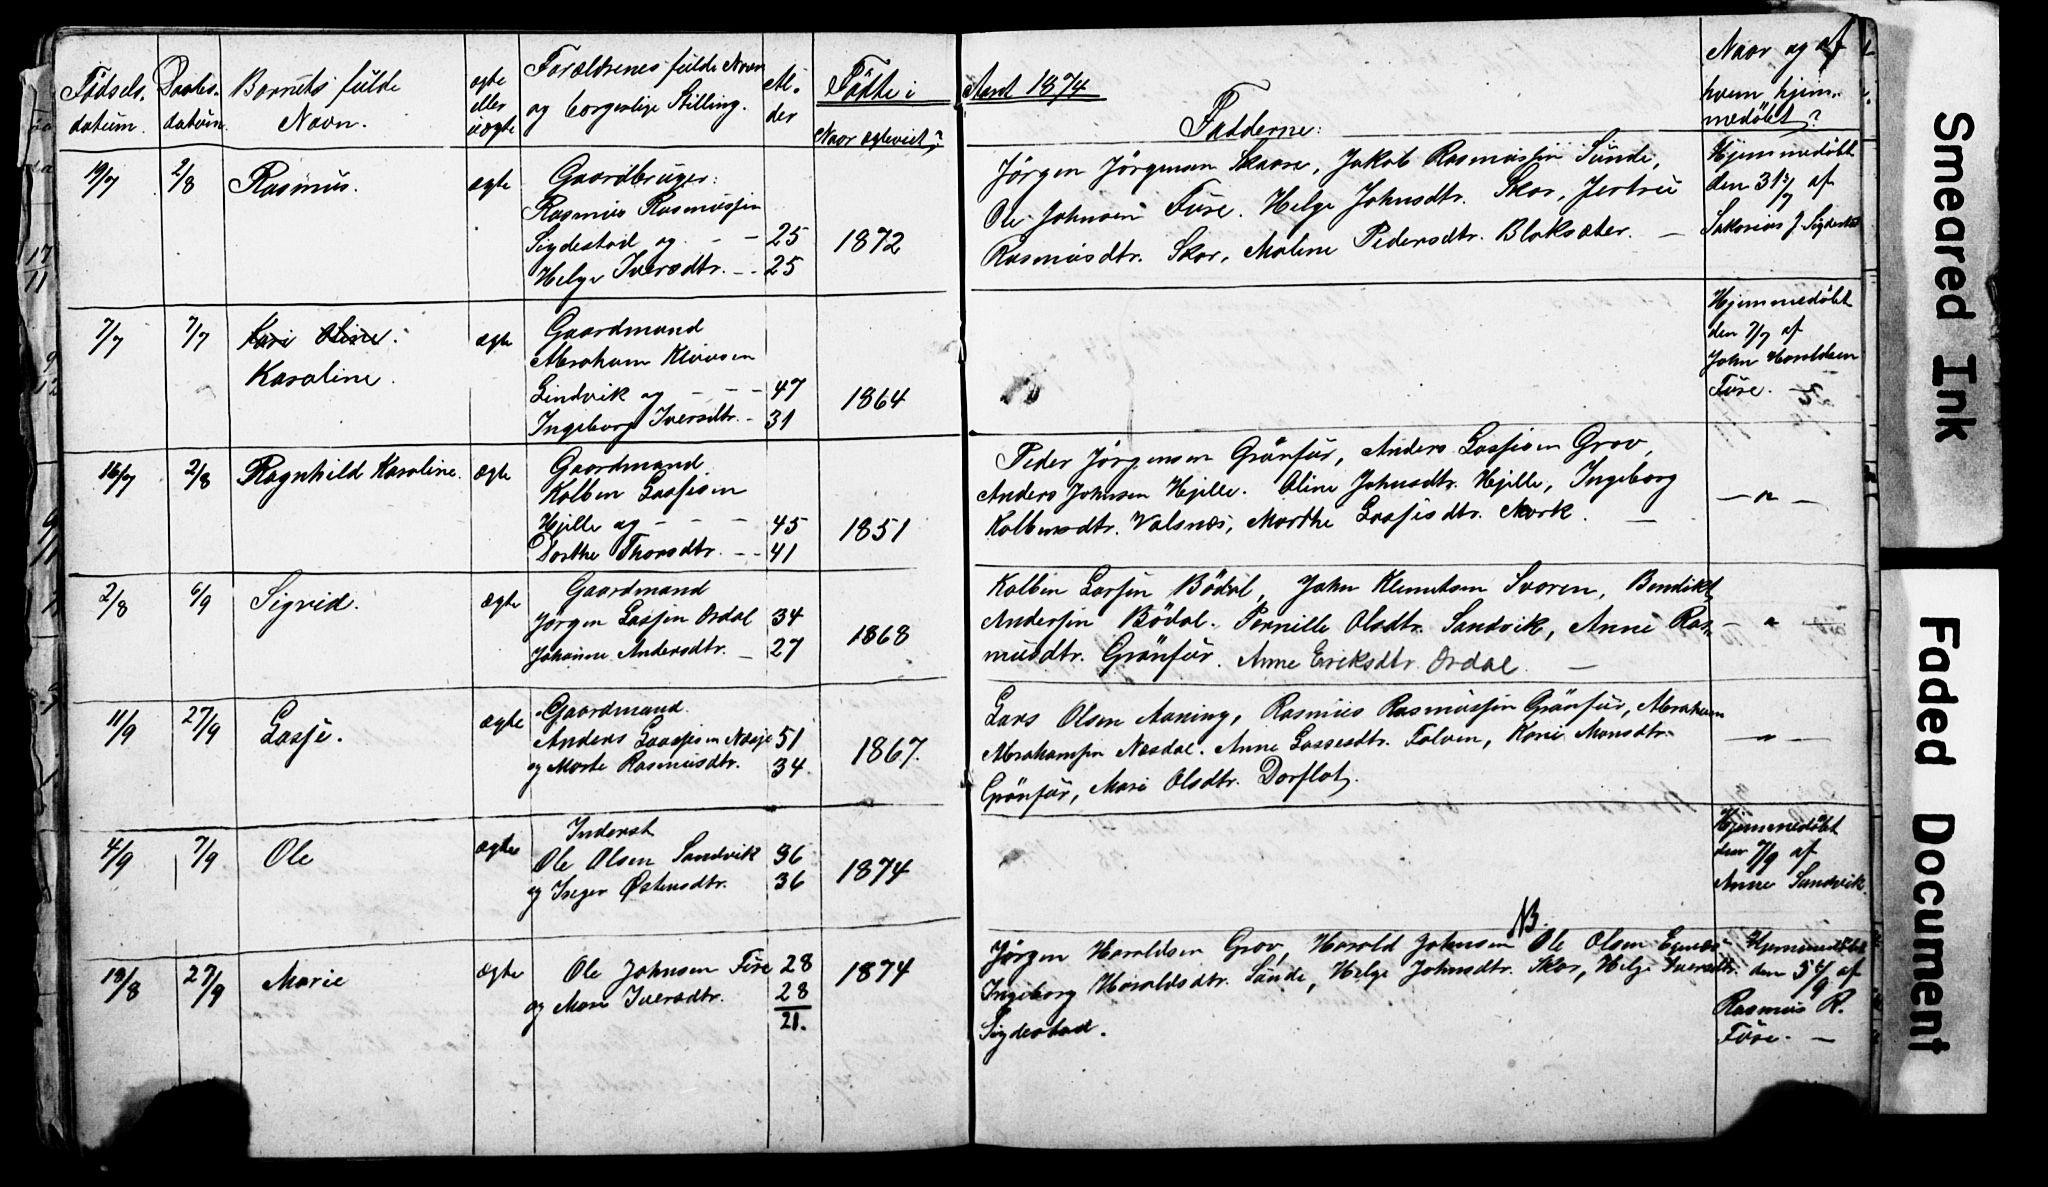 Fødsels-datum.
Daabs-datum.
Barnets fulde Navn.
ægte eller uægte
Forældrenes fulde Navn og borgerlige Stilling.
Al-der
Fødte i
Naar ægteviet?
Aaret 1874
Fadderne:
Naar og af hvem hjem-medøbt?
19/7
2/8
Rasmus.
ægte
Gaardbruger:
Rasmus Rasmussen
Sigdestad og - - 25
Helge Iversdtr. - - 25
1872
Jørgen Jørgensen Skaare, Jakob Rasmussen Sunde,
Ole Johnsen Fure. Helge Johnsdtr. Skor, Jertru
Rasmusdtr. Skor, Maline Pedersdtr. Bloksæter. —
Hjemmedøbt
den 31 5/7 af
Sakarias J. Sigdestad
7/7
7/7
Kari Oline.
Karoline.
ægte
Gaardmand
Abraham Klausen
Lindvik og - - - 47
Ingeborg Iversdtr. - 31
1864
Hjemmedøbt
den 7/7 af
John Haraldsen
Fure.
16/7
2/8
Ragnhild Karoline.
ægte
Gaardmand
Kolben Lassesen
Hjelle og - - - 45
Dorthe Thorsdtr. - - 41
1851
Peder Jørgensen Grønfur, Anders Lassesen Grov,
Anders Johnsen Hjelle. Oline Johnsdtr. Hjelle, Ingeborg
Kolbensdtr. Valsnæs, Marthe Lassesdtr. Mork. —
— " —
2/8
6/9
Sigrid.
ægte
Gaardmand
Jørgen Lassen Ordal 34
Johanne Andersdtr. - 27
1868
Kolben Larsen Bødal, John Klemetsen Svoren, Bendikt
Andersen Bødal. Pernille Olsdtr. Sandvik, Anne Ras-
musdtr. Grønfur. Anne Eriksdtr. Ordal. —
— " —
11/9
27/9
Lasse.
ægte
Gaardmand.
Anders Lassesen Nesje 51
og Marte Rasmusdtr. 34
1867.
Lars Olsen Aaning, Rasmus Rasmussen Grønfur, Abraham
Abrahamsen Nesdal. Anne Lassesdtr. Folven, Kari Monsdtr.
Grønfur, Mari Olsdtr. Dorflot.
— " —
4/9
7/9
Ole
ægte
Inderst
Ole Olsen Sandvik 36
og Inger Østensdtr. 36
1874
Hjemmedøbt
den 7/9 af
Anne Sandvik.
19/8
27/9
Marie
ægte
Ole Johnsen Fure 28
og Mari Iversdtr. 28
21.
1874
NB.
Jørgen Haraldsen Grov, Harald Johnsen Ole Olsen
Ingeborg Haraldsdtr. Sunde, Helge Johnsdtr. Skor, Helge Iversdtr.
Sigdestad.
Hjemmedøbt
den 5 4/9 af
Rasmus R.
Fure. —
17
11
9
12
Smeared Ink
Faded Document